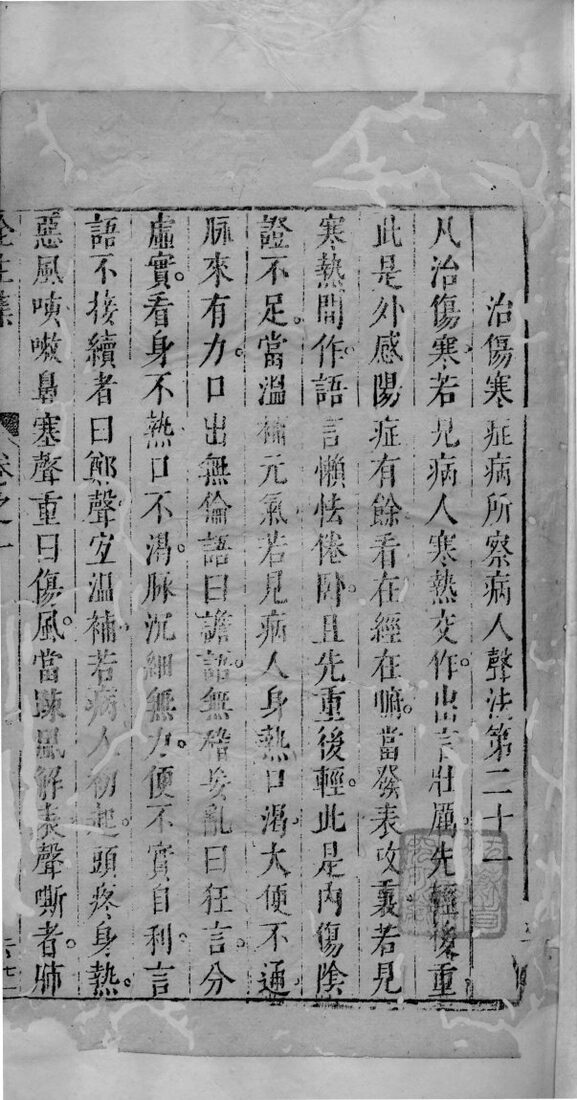 治傷寒症病所察病人聲法第二十一
凡治傷寒若見病人寒熱交作出言壯厲先輕後重
此是外感陽症有餘看在經在腑當發表攻裏若見
寒熱間作語言懶怯倦卧且先重後輕此是內傷陰
證不足當溫補元氣若見病人身熱口渴大便不通
脉來有力口出無倫語曰譫語無稽妄亂曰狂言分
虛實看身不熱口不渴脉沉細無力便不實自利言
語不接續者曰鄭聲宜温補若病人初起頭疼身熱
惡風咳嗽鼻塞聲重曰傷風當踈風解表聲嘶者肺
全生集 卷之一